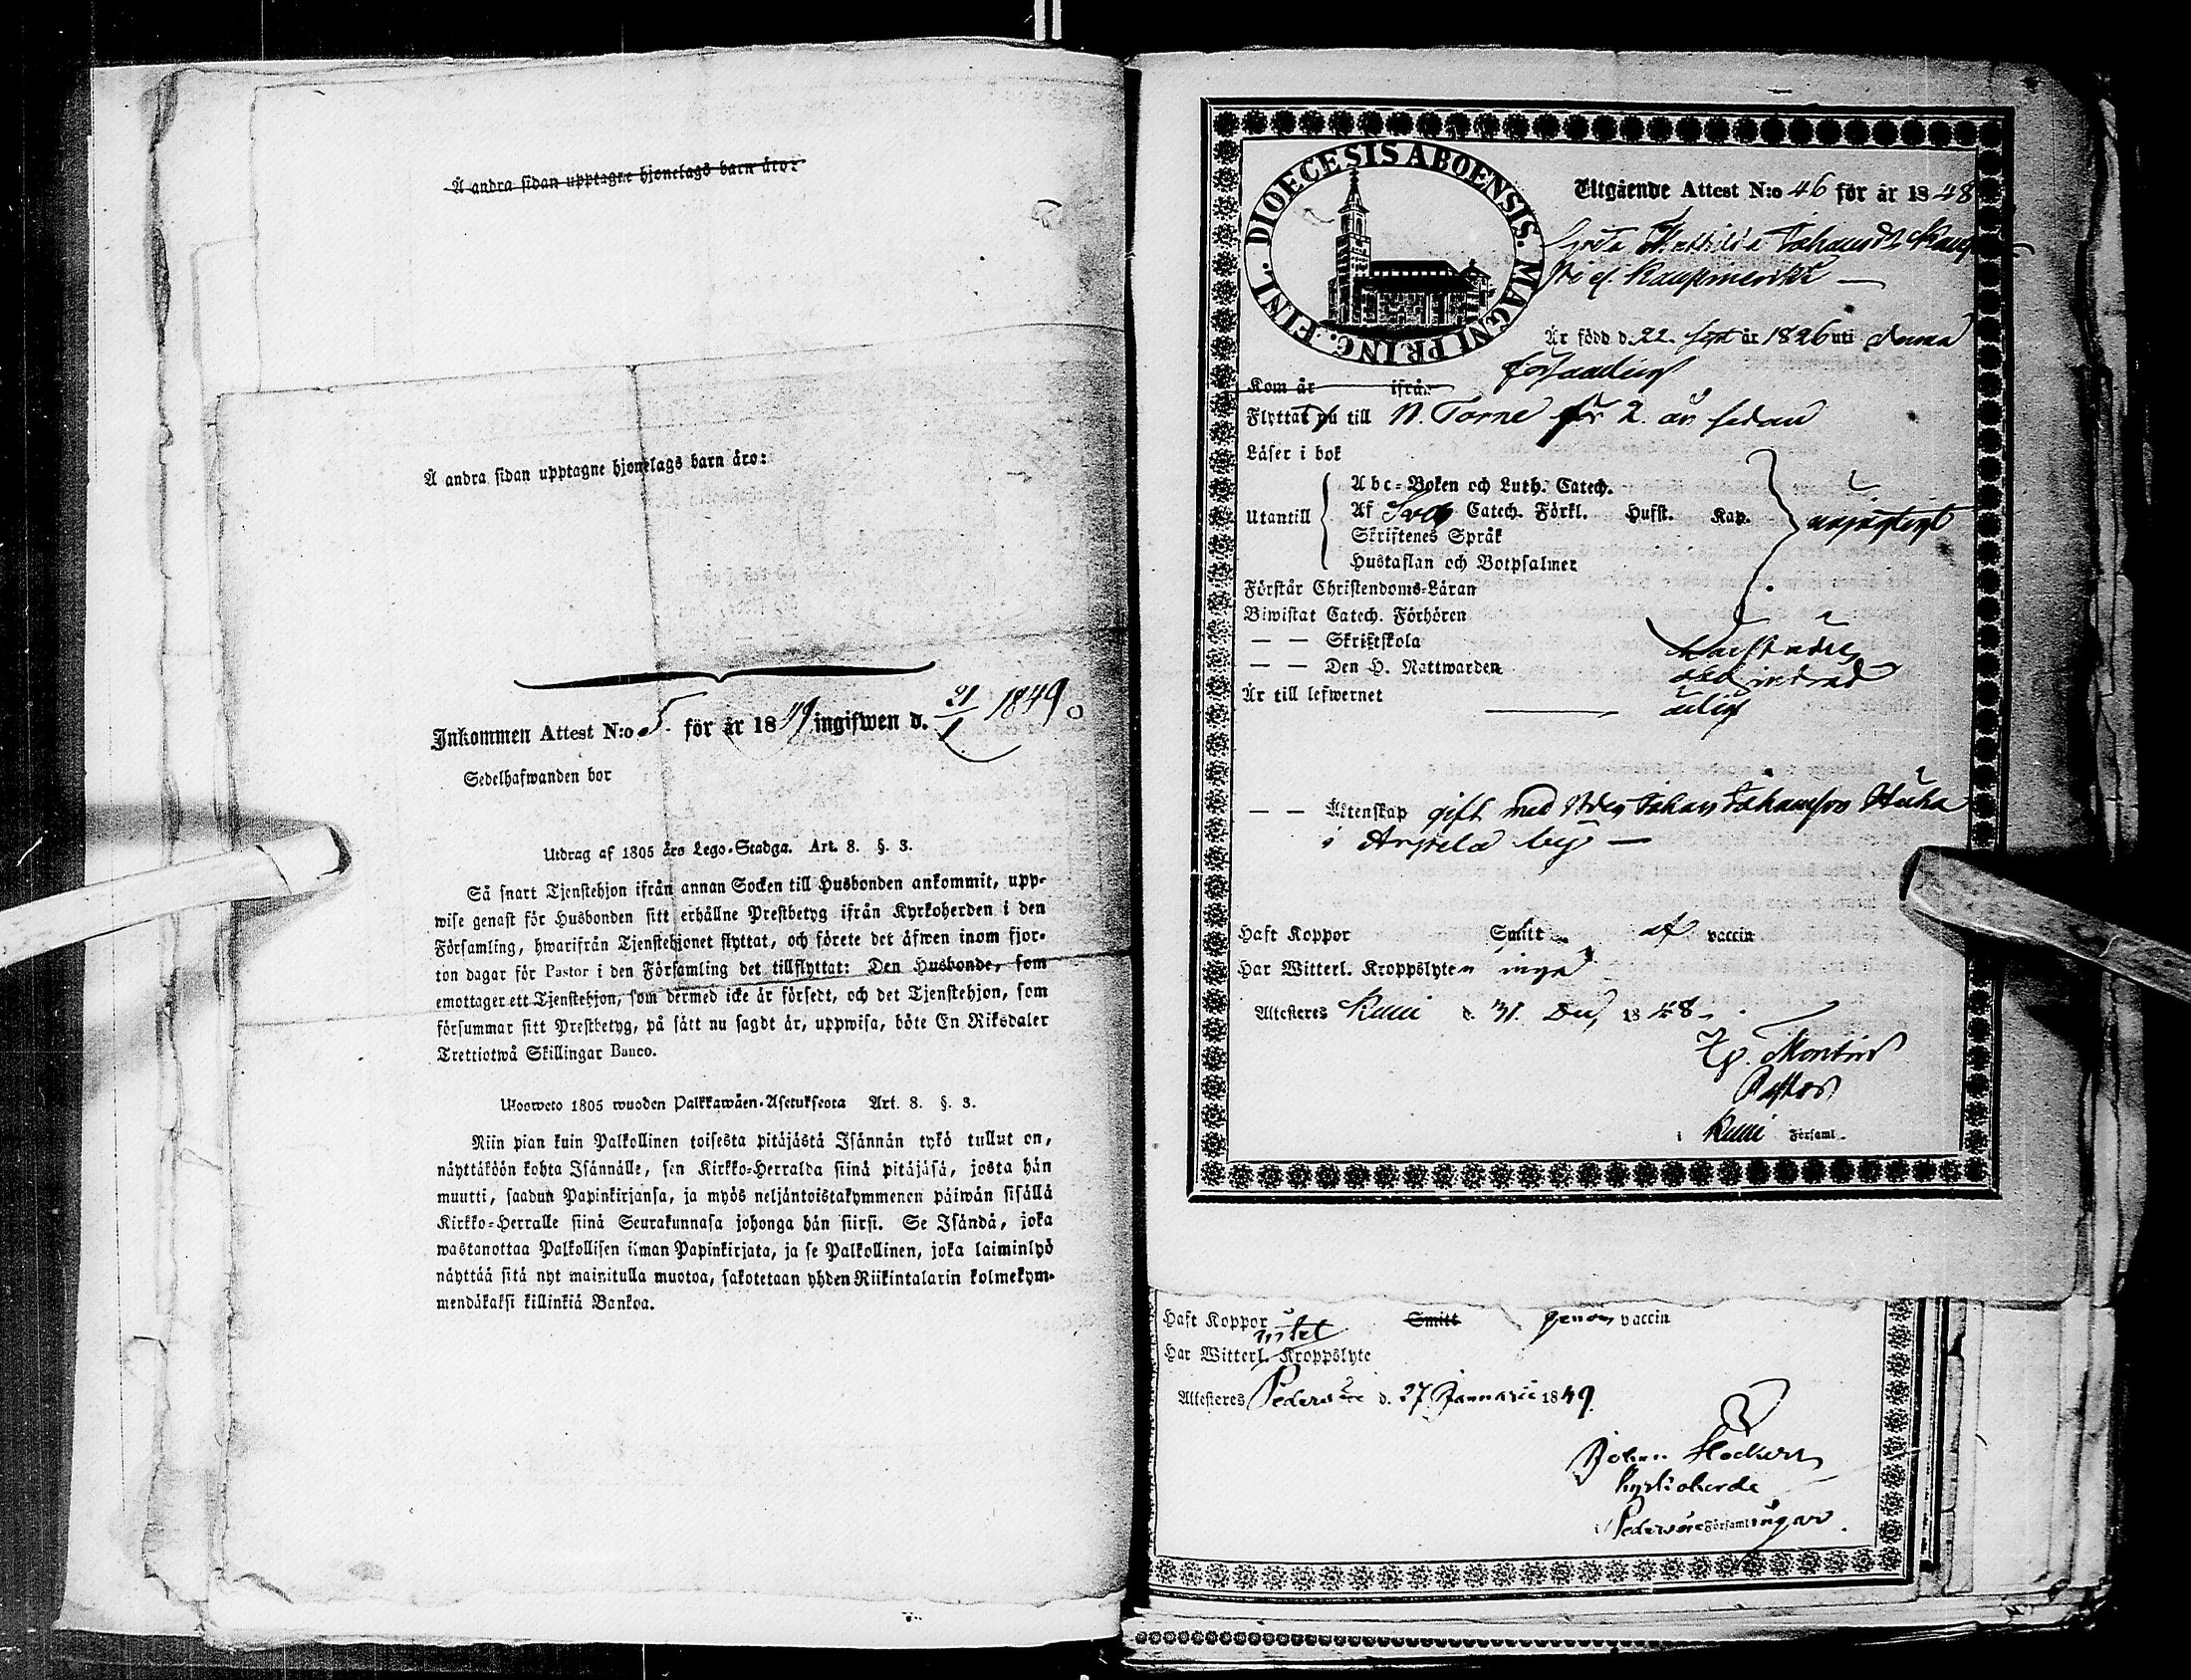 Å andra sidan upptagne hjonelags barn äro:
Å andra sidan upptagne hjonelags barn äro:
Inkommen Attest N:o 5 för år 1849 ingifwen d. 21/1 1849
Sedelhafwanden bor
Utdrag af 1805 års Lego-Stadga. Art. 8. §. 3.
Så snart Tjenstehjon ifrån annan Socken till Husbonden ankommit, upp-
wise genast för Husbonden sitt erhållne Prestbetyg ifrån Kyrkoherden i den
Församling, hwarifrån Tjenstehjonet flyttat, och förete det äfwen inom fjor-
ton dagar för Pastor i den Församling det tillflyttat: Den Husbonde, som
emottager ett Tjenstehjon, som dermed icke är försedt, och det Tjenstehjon, som
försummar sitt Prestbetyg, på sätt nu sagdt är, uppwisa, böte En Riksdaler
Trettiotwå Skillingar Banco.
Ulosweto 1805 wuoden Palkkawäen-Asetuksesta Art. 8. §. 3.
Niin pian kuin Palkollinen toisesta pitäjästä Isännän tykö tullut on,
näyttäköön kohta Isännälle, sen Kirkko-Herralda siinä pitäjäsä, josta hän
muutti, saadun Papinkirjansa, ja myös neljäntoistakymmenen päiwän sisällä
Kirkko-Herralle siinä Seurakunnasa johonga hän siirsi. Se Isändä, joka
wastanottaa Palkollisen ilman Papinkirjata, ja se Palkollinen, joka laiminlyö
näyttää sitä nyt mainitulla muotoa, sakotetaan yhden Riikintalarin kolmekym-
mendäkaksi killinkiä Bankoa.
DIOECESIS ABOENSIS. MAGNI PRINC. FINL.
Utgående Attest N:o 46 för år 1848
Greta Mathilda Johansdr
Är född d. 22. Sept år 1826 uti denna
Församling
Kom år ifrån
Flyttat nu till N. Torne för 2. år sedan
Läser i bok
Abc-Boken och Luth. Catech.
Utantill Af Sveb Catech. Förkl. Husst. Kap.
Skriftenes Språk
Hustaflan och Botpsalmer
Förstår Christendoms-Läran
Biwistat Catech. Förhören
— — Skriftskola
— — Den H. Nattwarden oklandrad
Är till lefwernet ärlig
— — Äktenskap gift med Johan Johansson
i by —
Haft Koppor Smitt af vaccin
Har Witterl. Kroppslyten inga
Attesteres Kemi d. 31. Dec, 1848.
Pastor
i Kemi Församl.
Haft Koppor Smitt genom vaccin
intet
Har Witterl. Kroppslyte
Attesteres Pedersöre d. 27 Januarii 1849
Johan
Kyrkoherde
i Pedersöre Församlingar.